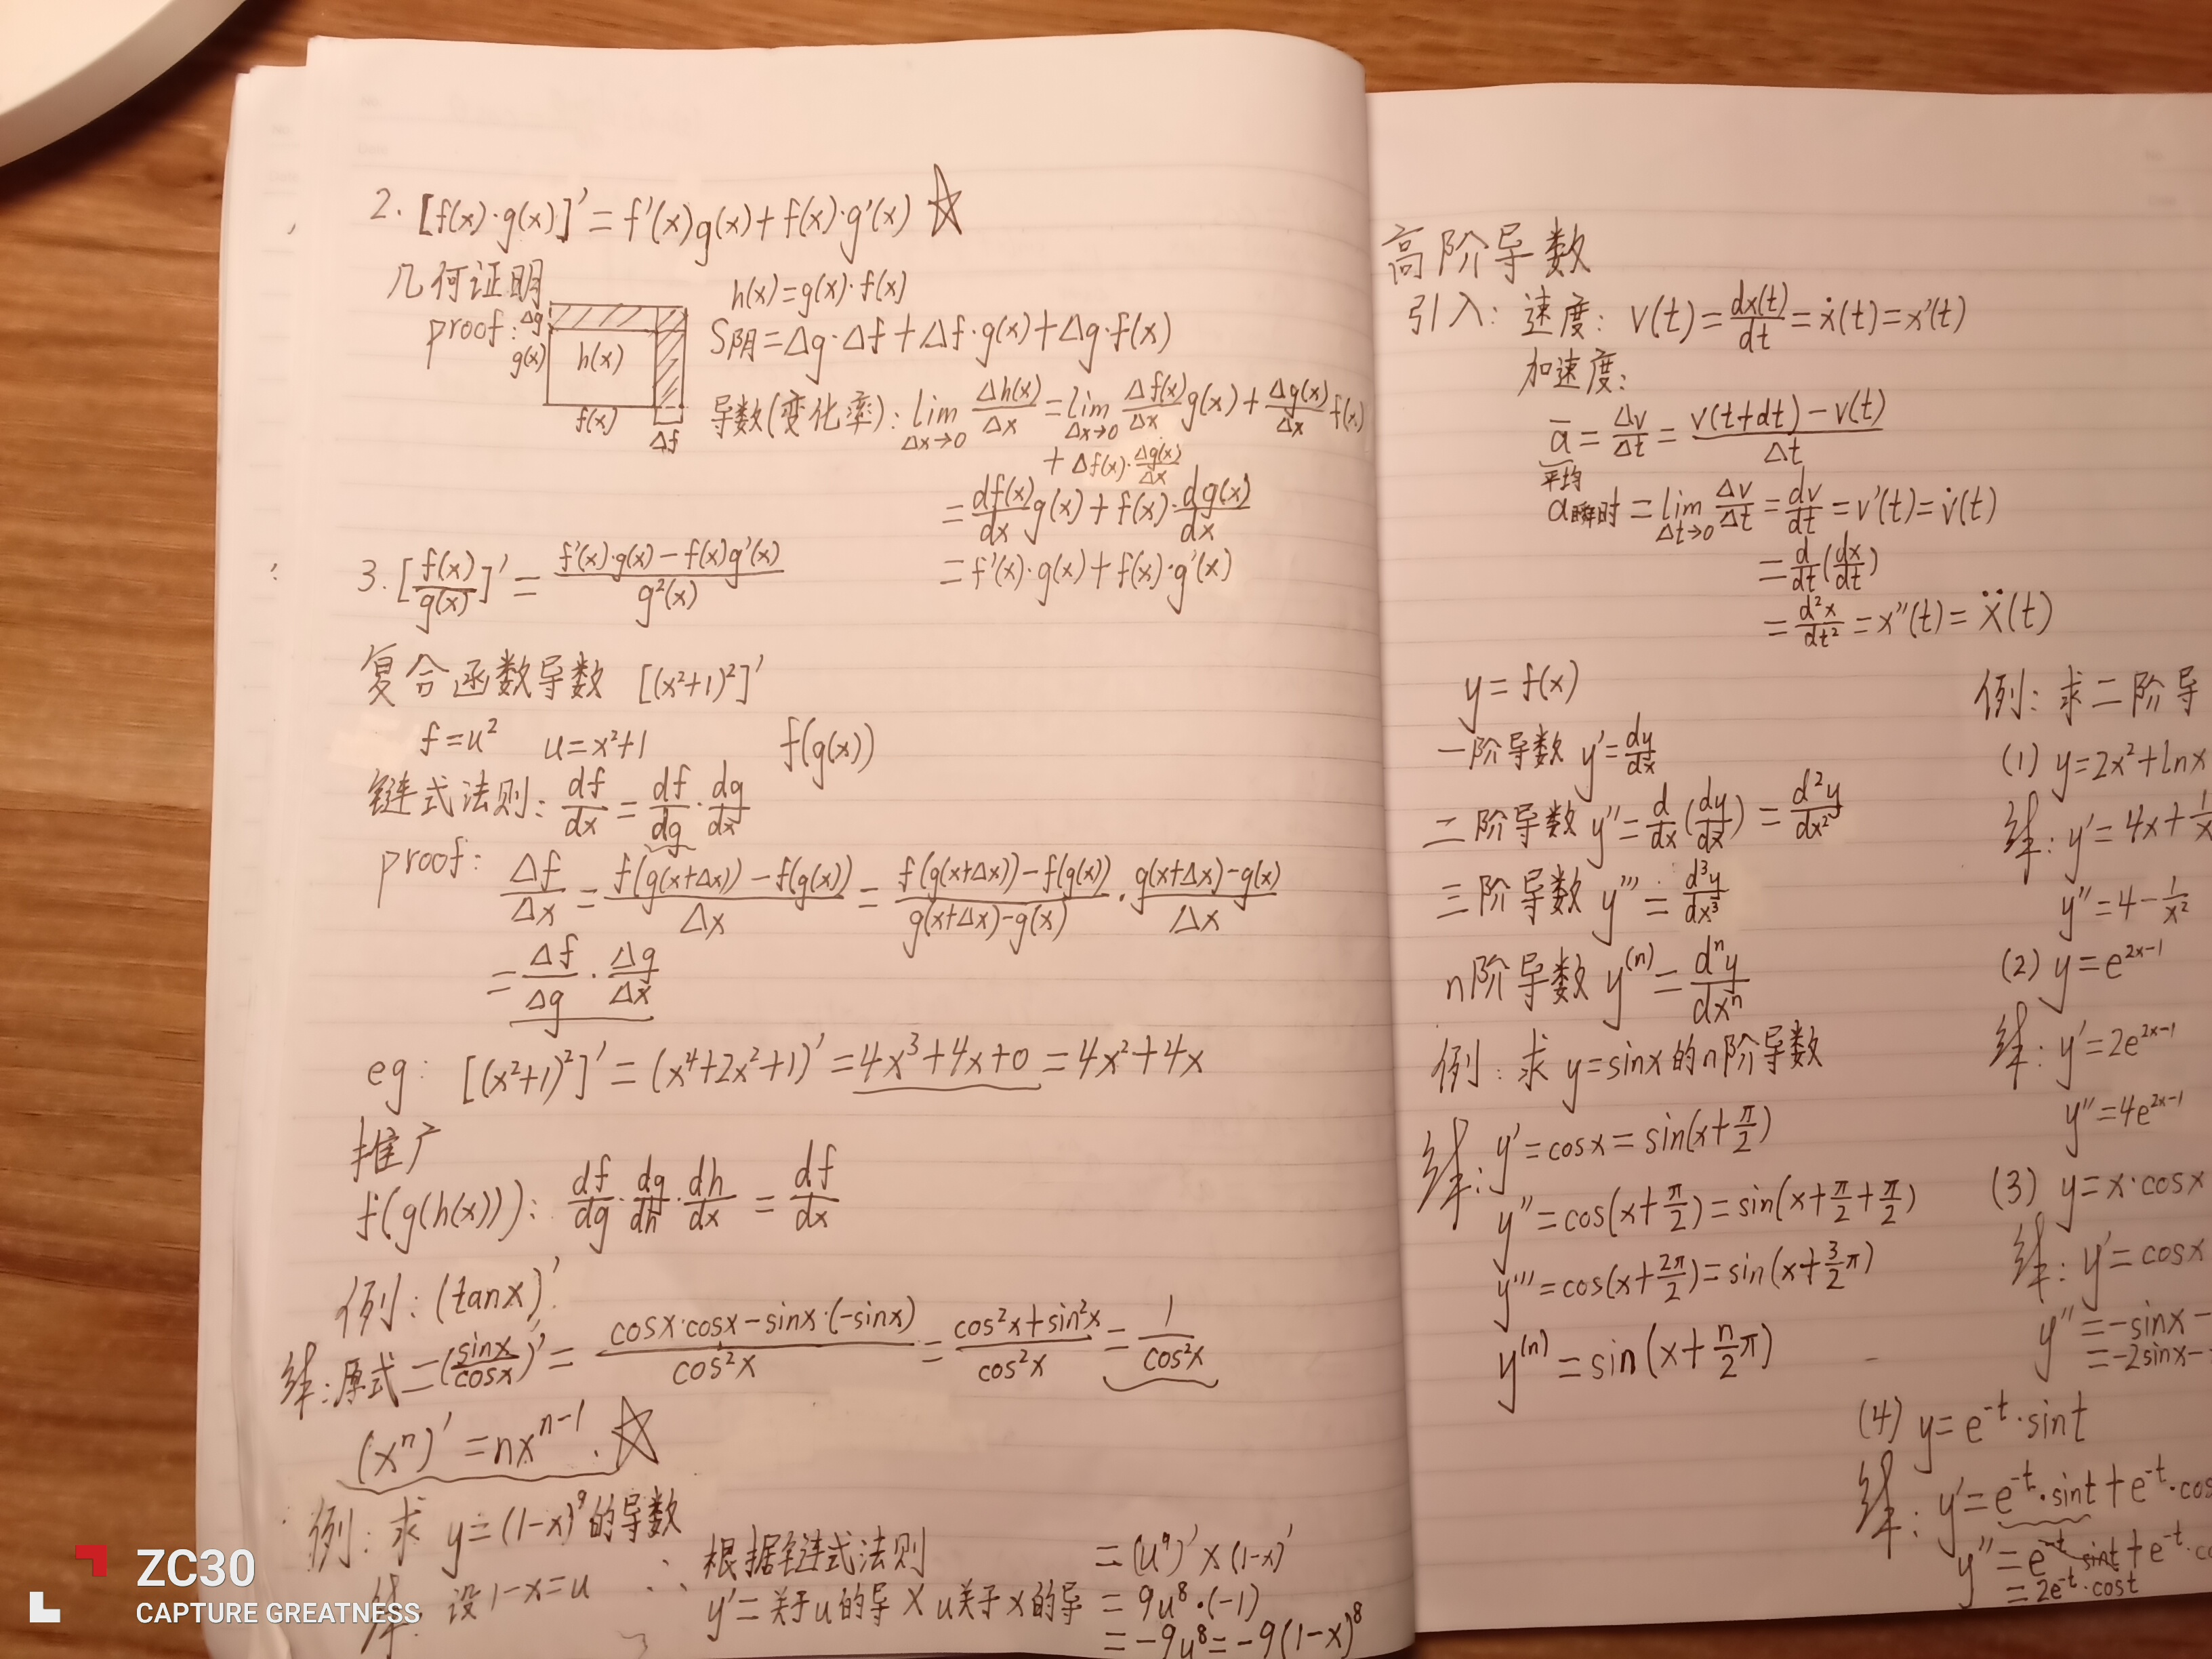 2. [f(x)·g(x)]′ = f′(x)g(x)+f(x)·g′(x) ☆
几何证明
proof:
Δg
g(x)
h(x)
f(x)
Δf
h(x)=g(x)·f(x)
S阴=Δg·Δf+Δf·g(x)+Δg·f(x)
导数(变化率): lim Δx→0 Δh(x)/Δx = lim Δx→0 Δf(x)/Δx g(x) + Δg(x)/Δx f(x)
+ Δf(x)·Δg(x)/Δx
= df(x)/dx g(x) + f(x)·dg(x)/dx
= f′(x)·g(x)+f(x)·g′(x)
3. [f(x)/g(x)]′ = f′(x)·g(x)−f(x)g′(x)/g²(x)
复合函数导数 [(x²+1)²]′
f=u² u=x²+1 f(g(x))
链式法则: df/dx = df/dg · dg/dx
proof: Δf/Δx = f(g(x+Δx))−f(g(x))/Δx = f(g(x+Δx))−f(g(x))/g(x+Δx)−g(x) · g(x+Δx)−g(x)/Δx
= Δf/Δg · Δg/Δx
eg: [(x²+1)²]′ = (x⁴+2x²+1)′ = 4x³+4x+0 = 4x²+4x
推广
f(g(h(x))): df/dg · dg/dh · dh/dx = df/dx
例: (tanx)′
解:原式=(sinx/cosx)′ = cosx·cosx−sinx·(−sinx)/cos²x = cos²x+sin²x/cos²x = 1/cos²x
(xⁿ)′ = nxⁿ⁻¹. ☆
例: 求 y=(1−x)⁹的导数
解: 设1−x=u ∴ 根据链式法则
y′=关于u的导×u关于x的导
= (u⁹)′×(1−x)′
= 9u⁸·(−1)
= −9u⁸ = −9(1−x)⁸
高阶导数
引入: 速度: v(t) = dx(t)/dt = ẋ(t) = x′(t)
加速度:
ā = Δv/Δt = v(t+dt)−v(t)/Δt
平均
a瞬时 = lim Δt→0 Δv/Δt = dv/dt = v′(t) = v̇(t)
= d/dt(dx/dt)
= d²x/dt² = x″(t) = ẍ(t)
y=f(x)
一阶导数 y′=dy/dx
二阶导数 y″=d/dx(dy/dx) = d²y/dx²
三阶导数 y‴ = d³y/dx³
n阶导数 y⁽ⁿ⁾ = dⁿy/dxⁿ
例: 求 y=sinx的n阶导数
解: y′=cosx=sin(x+π/2)
y″=cos(x+π/2)=sin(x+π/2+π/2)
y‴=cos(x+2π/2)=sin(x+3/2π)
y⁽ⁿ⁾ = sin(x+n/2π)
例: 求二阶导
(1) y=2x²+lnx
解: y′=4x+1/x
y″=4−1/x²
(2) y=e²ˣ⁻¹
解: y′=2e²ˣ⁻¹
y″=4e²ˣ⁻¹
(3) y=x·cosx
解: y′=cosx
y″=−sinx−
=−2sinx−
(4) y=e⁻ᵗ·sint
解: y′=e⁻ᵗ·sint+e⁻ᵗ·cos
y″=e⁻ᵗ sint+e⁻ᵗ·co
=2e⁻ᵗ·cost
ZC30
CAPTURE GREATNESS